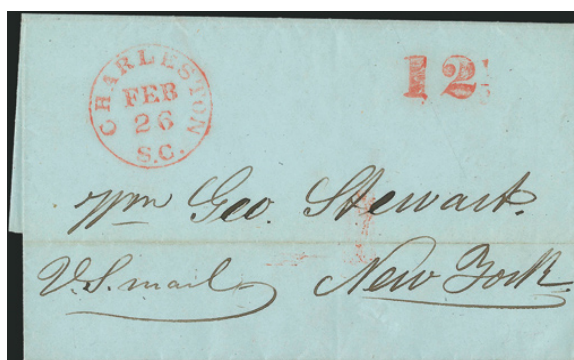 CHARLESTON
FEB
26
S.C.
12
Wm Geo. Stewart.
U.S. mail
New York.